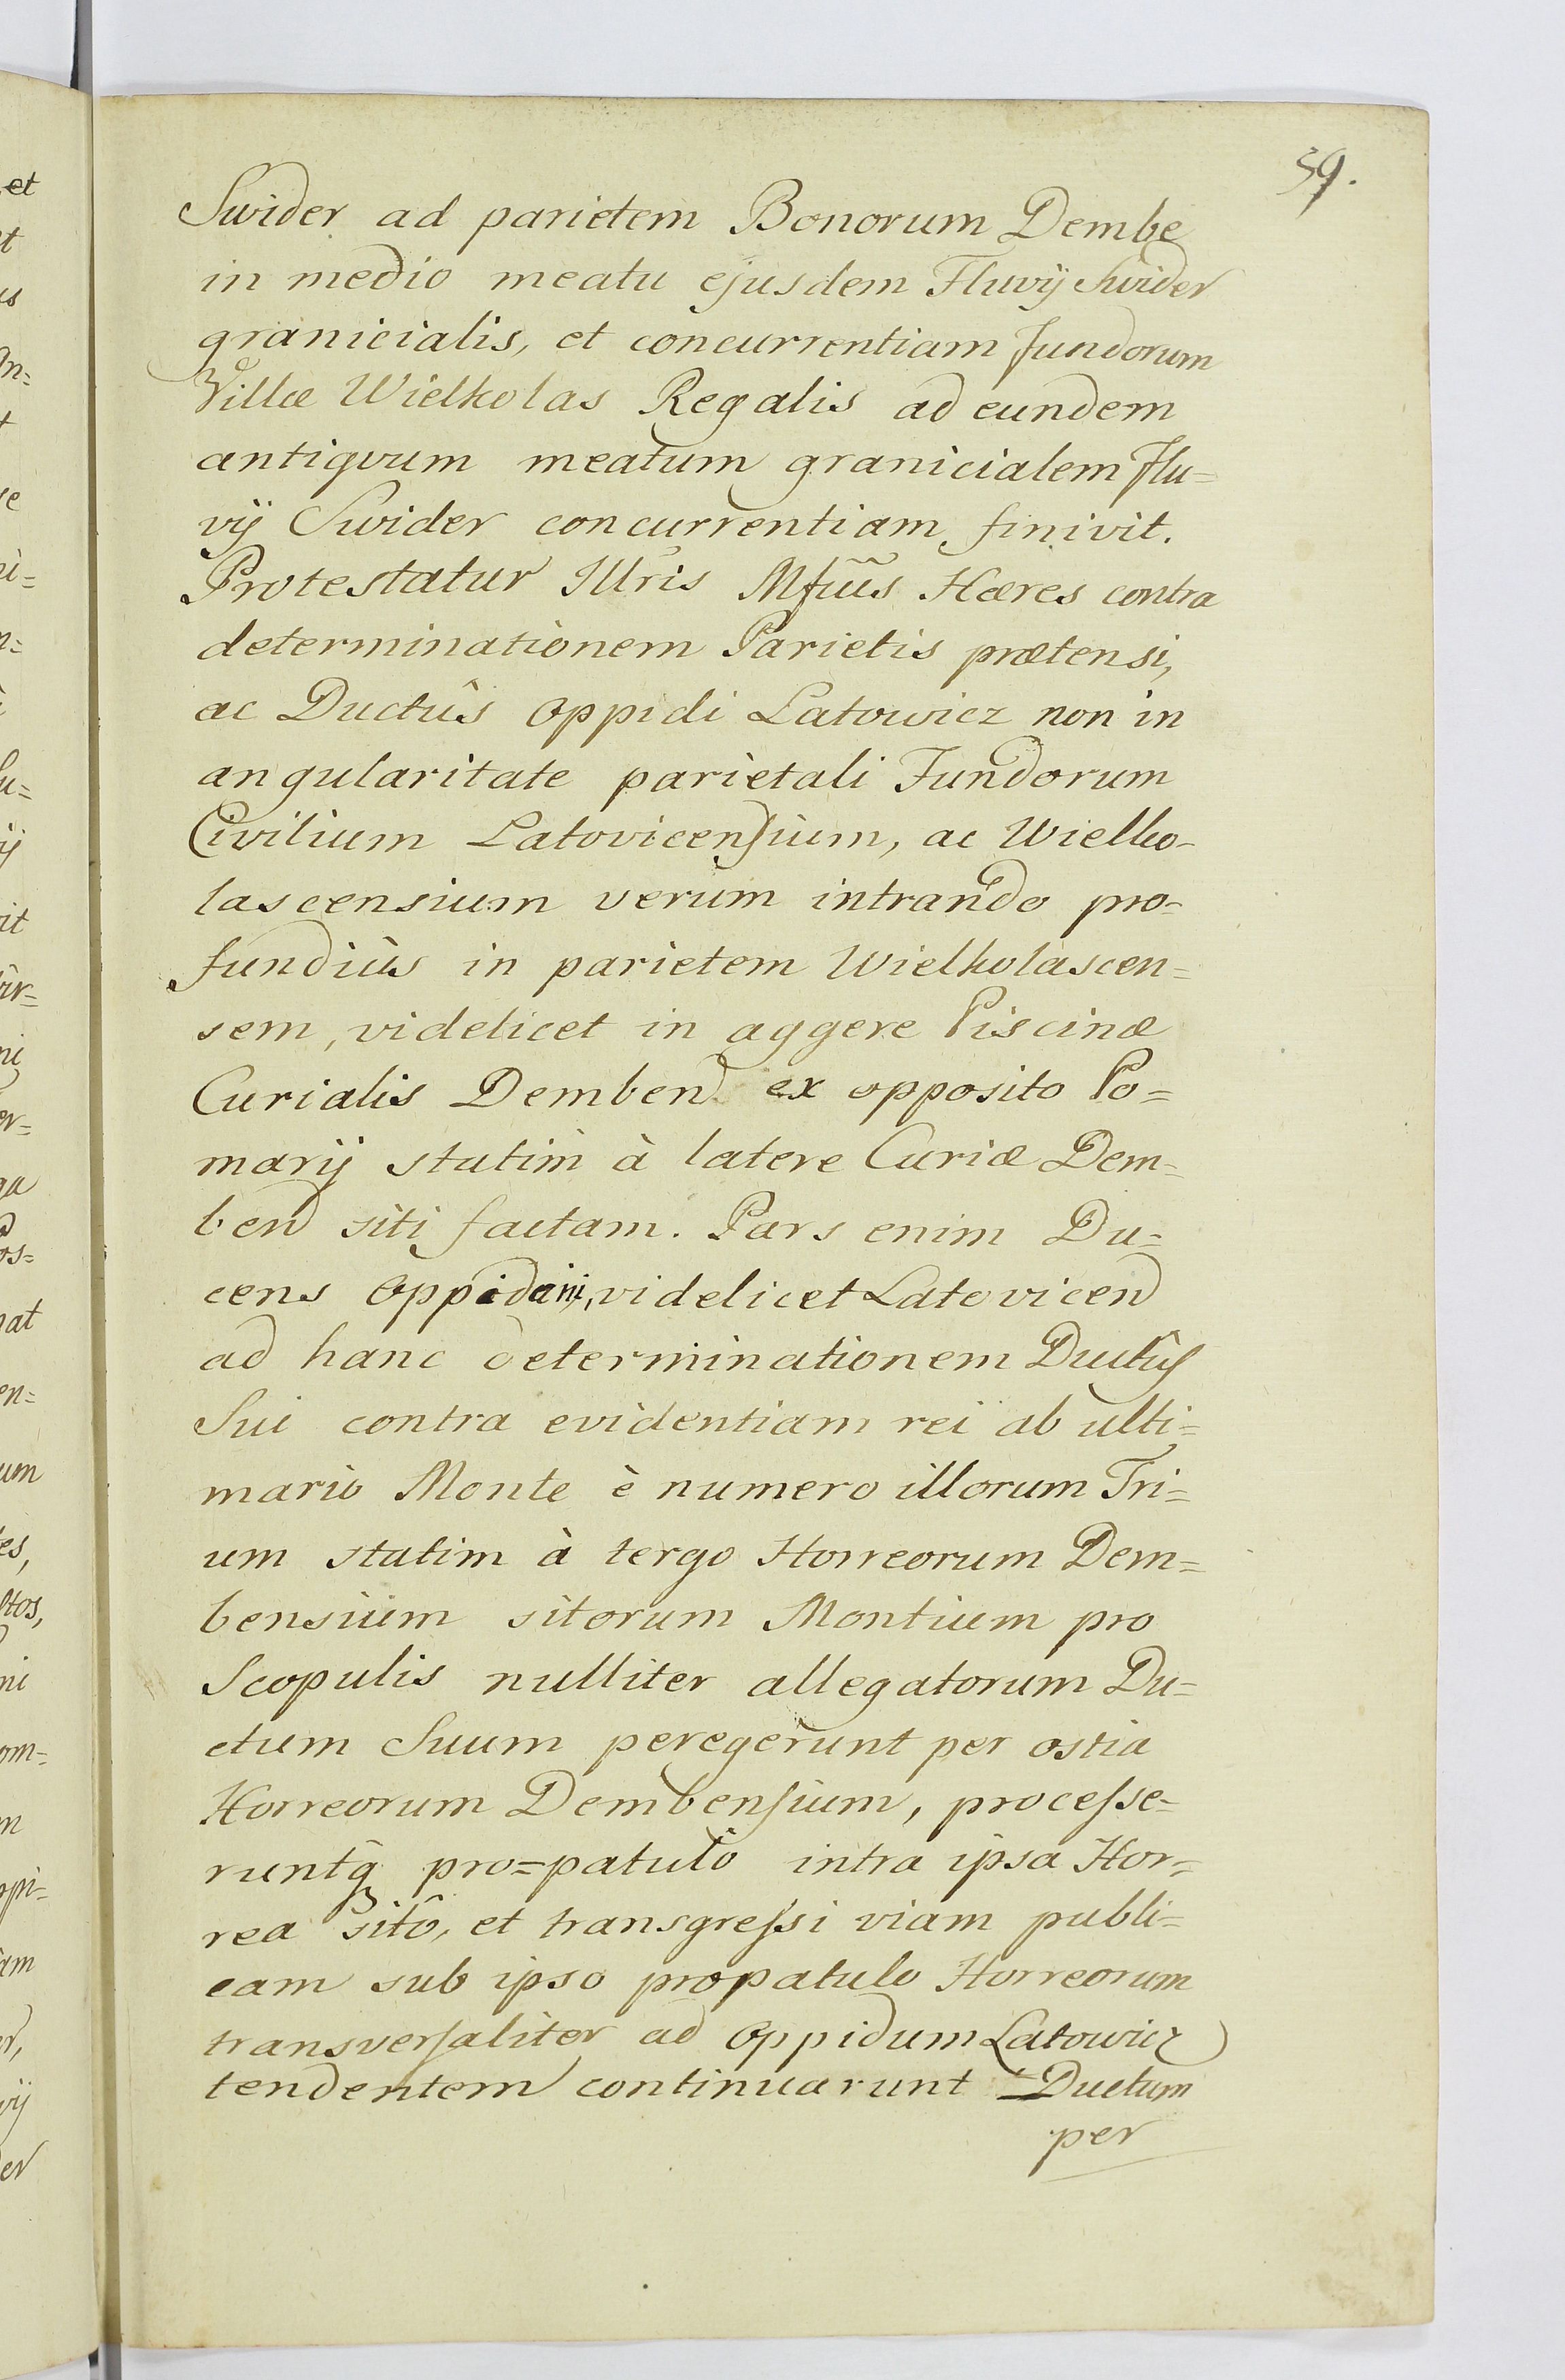 59.
Swider ad parietem Bonorum Dembe
in medio meatu ejusdem Fluvÿ Swider
granicialis, et concurrentiam fundorum
Villæ Wielkolas Regalis ad eundem
antiqvum meatum granicialem Flu=
vÿ Swider concurrentiam finivit.
Protestatur Illris Mfũũs Hæres contra
determinationem Parietis prætensi,
ac Ductûs Oppidi Latowicz non in
angularitate parietali Fundorum
Civilium Latovicensium, ac Wielko-
lascensium verum intrando pro-
fundiùs in parietem Wielkolascen=
sem, videlicet in aggere Piscinæ
Curialis Demben ex opposito Po=
marÿ statim à latere Curiæ Dem-
ben siti factam. Pars enim Du-
cens Oppidani, videlicet Latovicen
ad hanc determinationem Ductûs
Sui contra evidentiam rei ab ulti=
mario Monte è numero illorum Tri=
um statim à tergo Horreorum Dem=
bensium sitorum Montium pro
Scopulis nulliter allegatorum Du=
ctum Suum peregerunt per ostia
Horreorum Dembensium, processe=
runtq́ pro=patulo intra ipsa Hor=
rea sitô, et transgressi viam publi=
cam sub ipso propatulo Horreorum
transversaliter ad Oppidum Latowicz
tendentem continuarunt Ductum
per
et